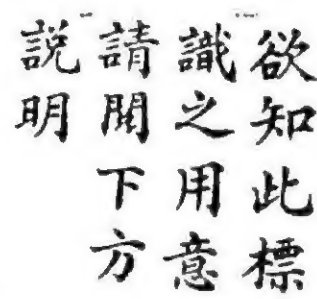 欲知此標
識之用意
請閱下方
説明